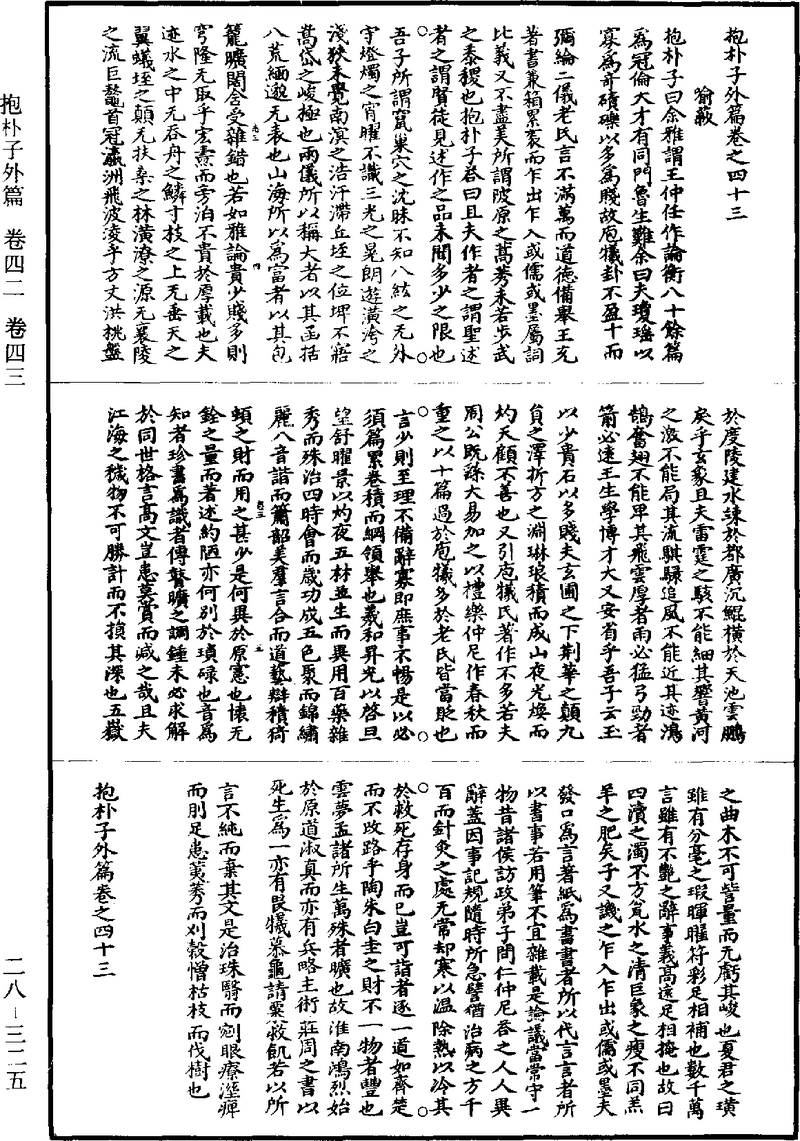 抱朴子外篇卷之四十三
喻蔽
抱朴子曰余雅謂王仲任作論衡八十餘篇
為冠倫大才有同門魯生難余曰夫瓊瑤以
寡為奇磧礫以多為賤故庖犧卦不盈十而
彌綸二儀老氏言不滿萬而道德備舉王充
著書兼箱累袠而乍出乍入或儒或墨屬詞
比義又不盡美所謂陂原之蒿莠未若步武
之黍稷也抱朴子荅曰且夫作者之謂聖述
者之謂賢徒見述作之品未聞多少之限也
吾子所謂竄巢穴之沈昧不知八紘之无外
守燈燭之宵曜不識三光之晃朗遊潢洿之
淺狹未覺南溟之浩汗滯丘垤之位埤不寤
嵩岱之峻極也兩儀所以稱大者以其函括
八荒緬邈无表也山海所以為富者以其包
籠曠闊含受雜錯也若如雅論貴少賤多則
穹隆无取乎宏燾而旁泊不貴於厚載也夫
迹水之中无吞舟之鱗寸枝之上无垂天之
翼蟻垤之顛无扶桑之林潢潦之源无襄陵
之流巨鼇首冠瀛洲飛波凌乎方丈洪桃盤
於度陵建木竦於都廣沉鯤橫於天池雲鵬
戾乎玄象且夫雷霆之駭不能細其響黃河
之激不能局其流騏騄追風不能近其迹鴻
鵠奮翅不能卑其飛雲厚者雨必猛弓勁者
箭必遠王生學博才大又安省乎吾子云玉
以少貴石以多賤夫玄圃之下荊華之顛九
員之澤折方之淵琳琅積而成山夜光煥而
灼天顧不善也又引庖犧氏著作不多若夫
周公既繇大易加之以禮樂仲尼作春秋而
重之以十篇過於庖犧多於老氏皆當貶也
言少則至理不備辭寡即庶事不暢是以必
須篇累卷積而綱領舉也羲和昇光以啓旦
望舒曜景以灼夜五材並生而異用百藥雜
秀而殊治四時會而歲功成五色聚而錦繡
麗八音諧而簫韶美羣言合而道藝辯積猗
頓之財而用之甚少是何異於原憲也懷无
銓之量而著述約陋亦何別於瑣碌也音為
知者珍書為識者傳瞽曠之調鍾未必求解
於同世格言高文豈患莫賞而減之哉且夫
江海之穢物不可勝計而不損其深也五嶽
之曲木不可訾量而无虧其峻也夏君之璜
雖有分毫之瑕暉曜符彩足相補也數千萬
言雖有不艷之辭事義高遠足相掩也故曰
四瀆之濁不方瓮水之清巨象之瘦不同羔
羊之肥矣子又譏之乍入乍出或儒或墨夫
發口為言著紙為書書者所以代言言者所
以書事若用筆不宜雜載是論議當常守一
物昔諸侯訪政弟子問仁仲尼荅之人人異
辭蓋因事託規隨時所急譬猶治病之方千
百而針灸之處无常却寒以温除熱以冷其
於救死存身而已豈可詣者逐一道如齊楚
而不改路乎陶朱白圭之財不一物者豐也
雲夢孟諸所生萬殊者曠也故淮南鴻烈始
於原道淑真而亦有兵略主術莊周之書以
死生為一亦有畏犧慕龜請粟救飢若以所
言不純而棄其文是治珠翳而剜眼療溼痺
而刖足患荑莠而刈穀憎枯枝而伐樹也
抱朴子外篇卷之四十三
抱朴子外篇　卷四二　卷四三
二八－三二五